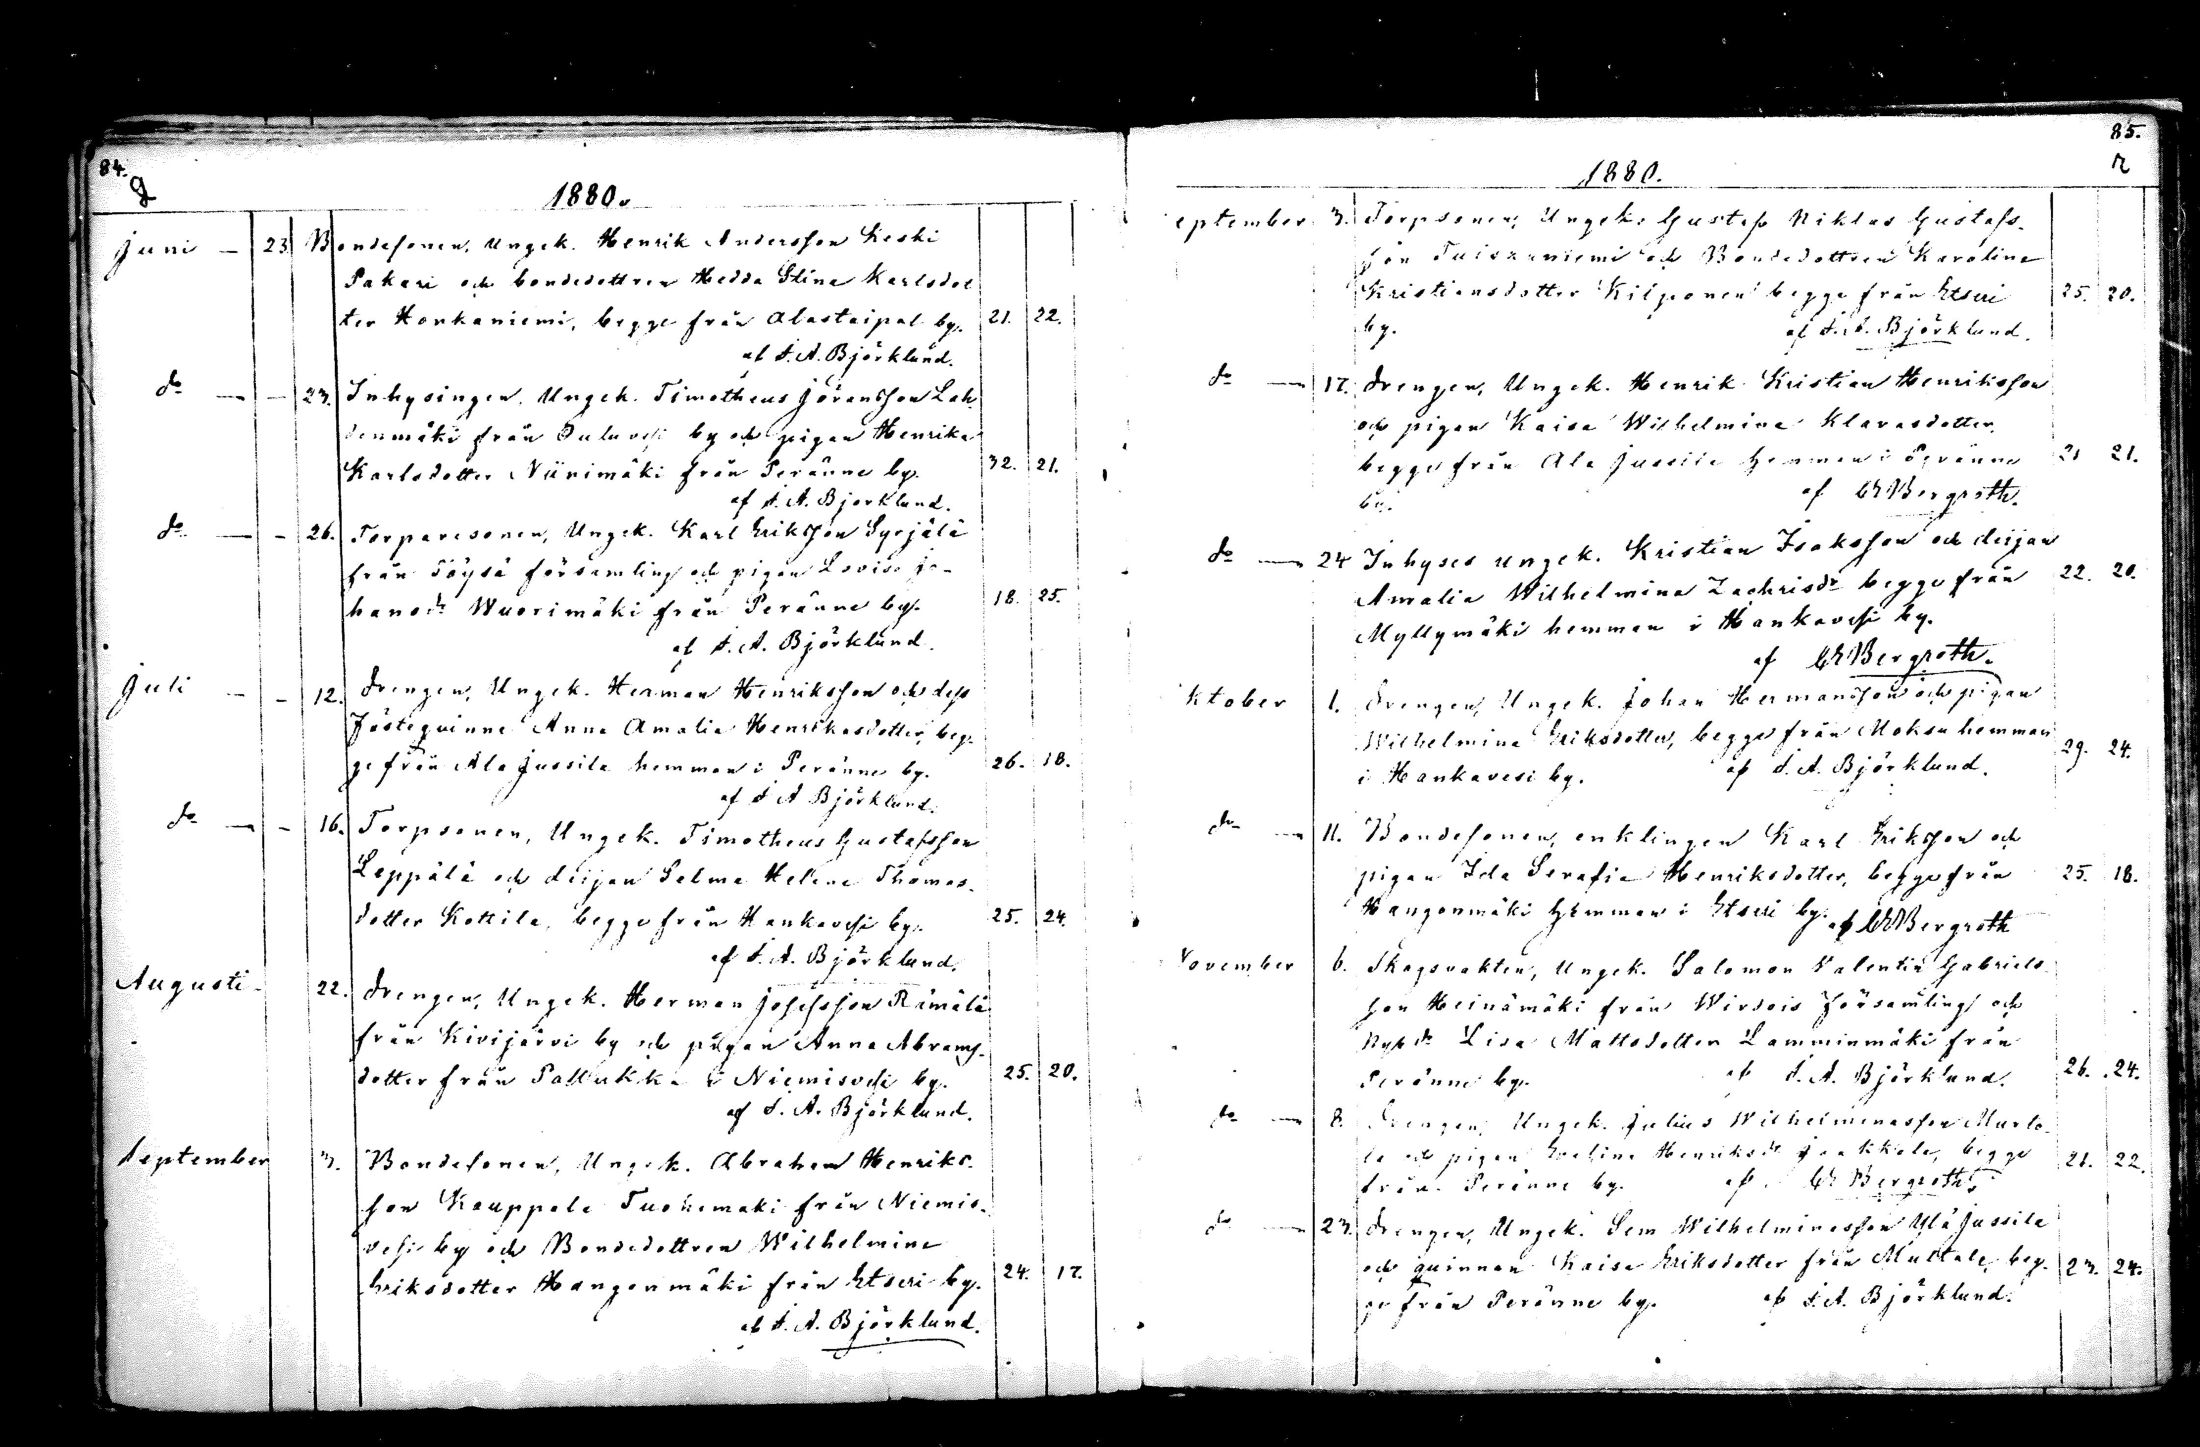 84.
1880.
Juni — 23 Bondesonen, Ungk. Henrik Andersson Keski
Pakari och bondedottren Hedda Stina Karlsdot
ter Honkaniemi, begge från Alastaipal by. 21. 22.
af F. A. Björklund.
do — — 23. Inhysingen, Ungk. Timotheus Göransson Lah
denmäki från Ouluvesi by och pigan Henrika
Karlsdotter Niinimäki från Peränne by. 32. 21.
af F. A. Björklund.
do — — 26. Torparesonen, Ungk. Karl Eriksson Syrjälä
från Töysä församling och pigan Lovisa Jo-
hansdr Wuorimäki från Peränne by. 18. 25.
af F. A. Björklund.
Juli — — 12. Drengen, Ungk. Herman Henriksson och dess
Fästeqvinna Anna Amalia Henriksdotter, beg-
ge från Ala Jussila hemman i Peränne by. 26. 18.
af F. A. Björklund.
do — — 16. Torpsonen, Ungk. Timotheus Gustafsson
Leppälä och deijan Selma Helena Thomas-
dotter Kottila, begge från Hankavesi by. 25. 24.
af F. A. Björklund.
Augusti — 22. Drengen, Ungk. Herman Josefsson Rämälä
från Kivijärvi by och pigan Anna Abrams-
dotter från Pallukka i Niemisvesi by. 25. 20.
af F. A. Björklund.
September 3. Bondesonen, Ungk. Abraham Henriks-
son Kauppala Tuohimäki från Niemis-
vesi by och Bondedottren Wilhelmina
Eriksdotter Hangonmäki från Etseri by. 24. 17.
af F. A. Björklund.
85.
1880.
eptember 3. Torpsonen, Ungk. Gustaf Niklas Gustafs-
son Tuiskuniemi och Bondedottren Karolina
Kristiansdotter Kilponen begge från Etseri 25. 20.
by. af F. A. Björklund.
do — 17. Drengen, Ungk. Henrik Kristian Henriksson
och pigan Kaisa Wilhelmina Klarasdotter,
begge från Ala Jussila hemman i Peränne 21 21.
by. af CE Bergroth.
do — 24 Inhyses ungk. Kristian Isaksson och deijan
Amalia Wilhelmina Zachrisdr begge från 22. 20.
Myllymäki hemman i Hankavesi by.
af CE Bergroth.
ktober 1. Drengen, Ungk. Johan Hermansson och pigan
Wilhelmina Eriksdotter, begge från Moksu hemman 29. 24.
i Hankavesi by. af F. A. Björklund.
do — 11. Bondesonen, enklingen Karl Eriksson och
pigan Ida Serafia Henriksdotter, begge från 25. 18.
Hangonmäki hemman i Etseri by. af CE Bergroth
ovember 6. Skogsvakten, Ungk. Salomon Valentin Gabriels-
son Heinämäki från Wirdois församling och
Nybdr Lisa Mattsdotter Lamminmäki från
Peränne by. af F. A. Björklund. 26. 24.
do — 8. Drengen, Ungk. Julius Wilhelminasson Murto-
la och pigan Evelina Henriksdr Jaakkola, begge 21. 22.
från Peränne by. af CE Bergroth.
do — 23. Drengen, Ungk. Sem Wilhelminasson Ylä Jussila
och qvinnan Kaisa Eriksdotter från Multala, beg- 23. 24.
ge från Peränne by. af F. A. Björklund.